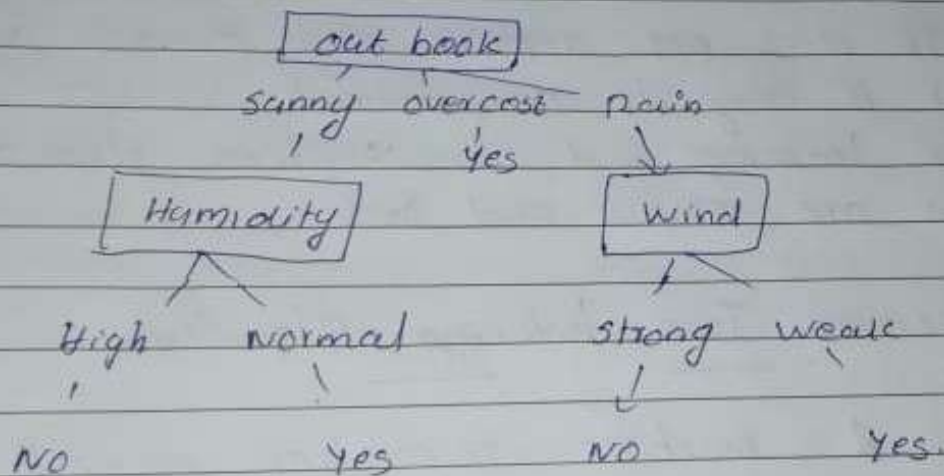 out book
sunny overcost Rain
yes
Humidity wind
High Normal strong weak
No yes No yes.